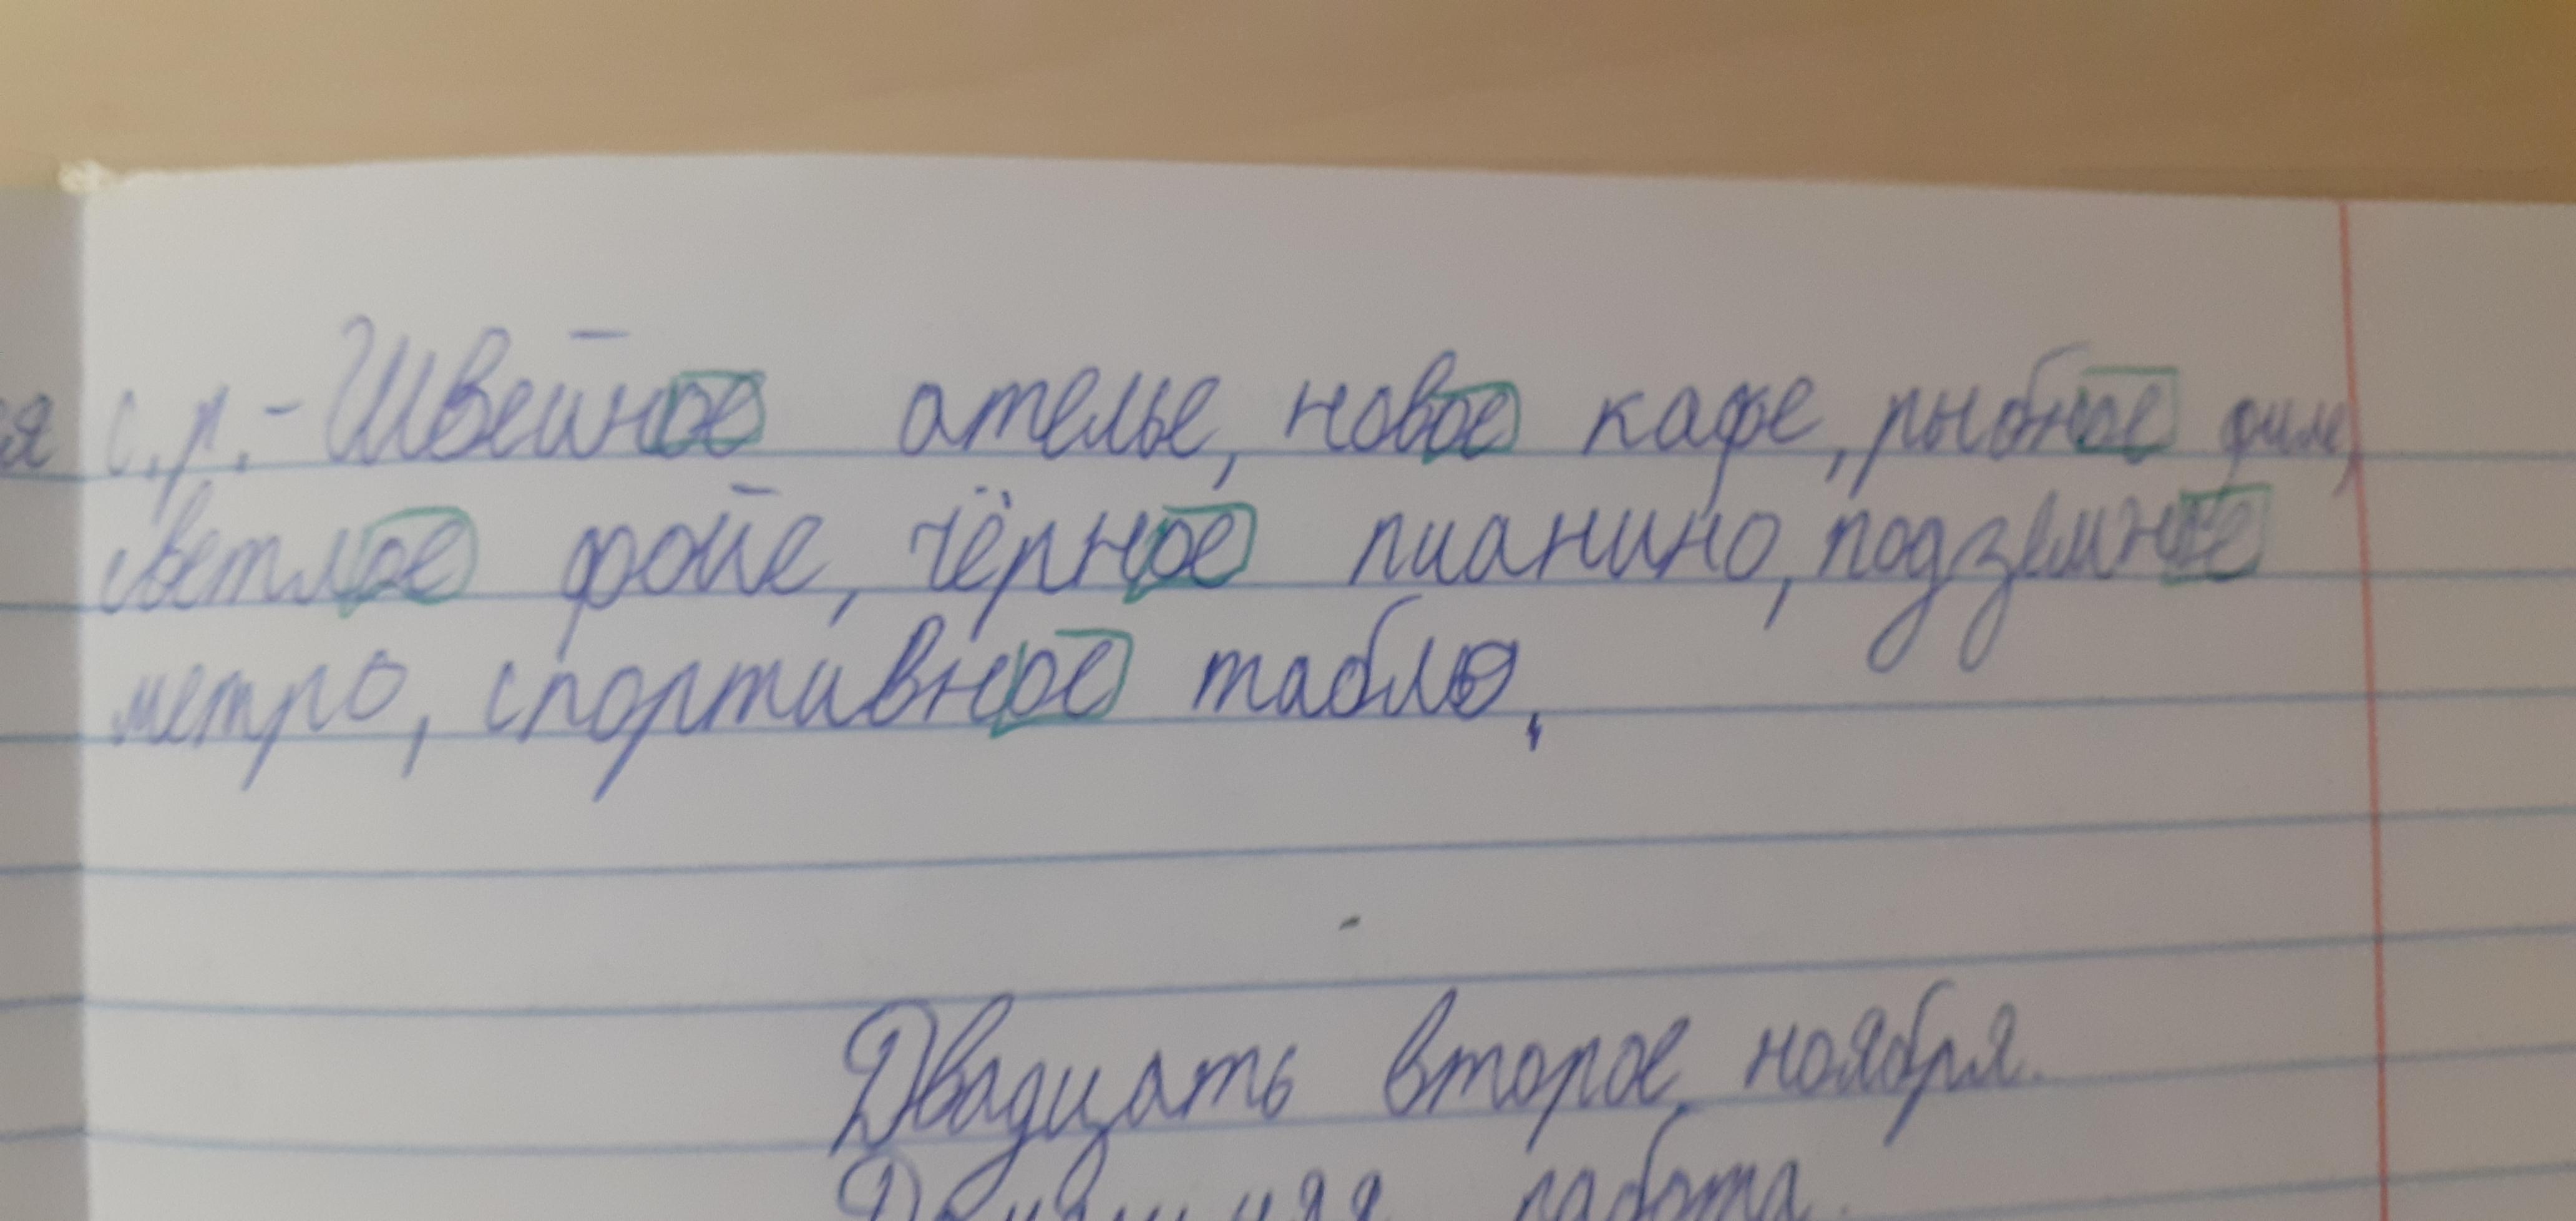 ся с.р. - Швейное ателье, новое кафе, рыбное филе,
светлое фойе, чёрное пианино, подземное
метро, спортивное табло.
Двадцать второе ноября.
Домашняя работа.